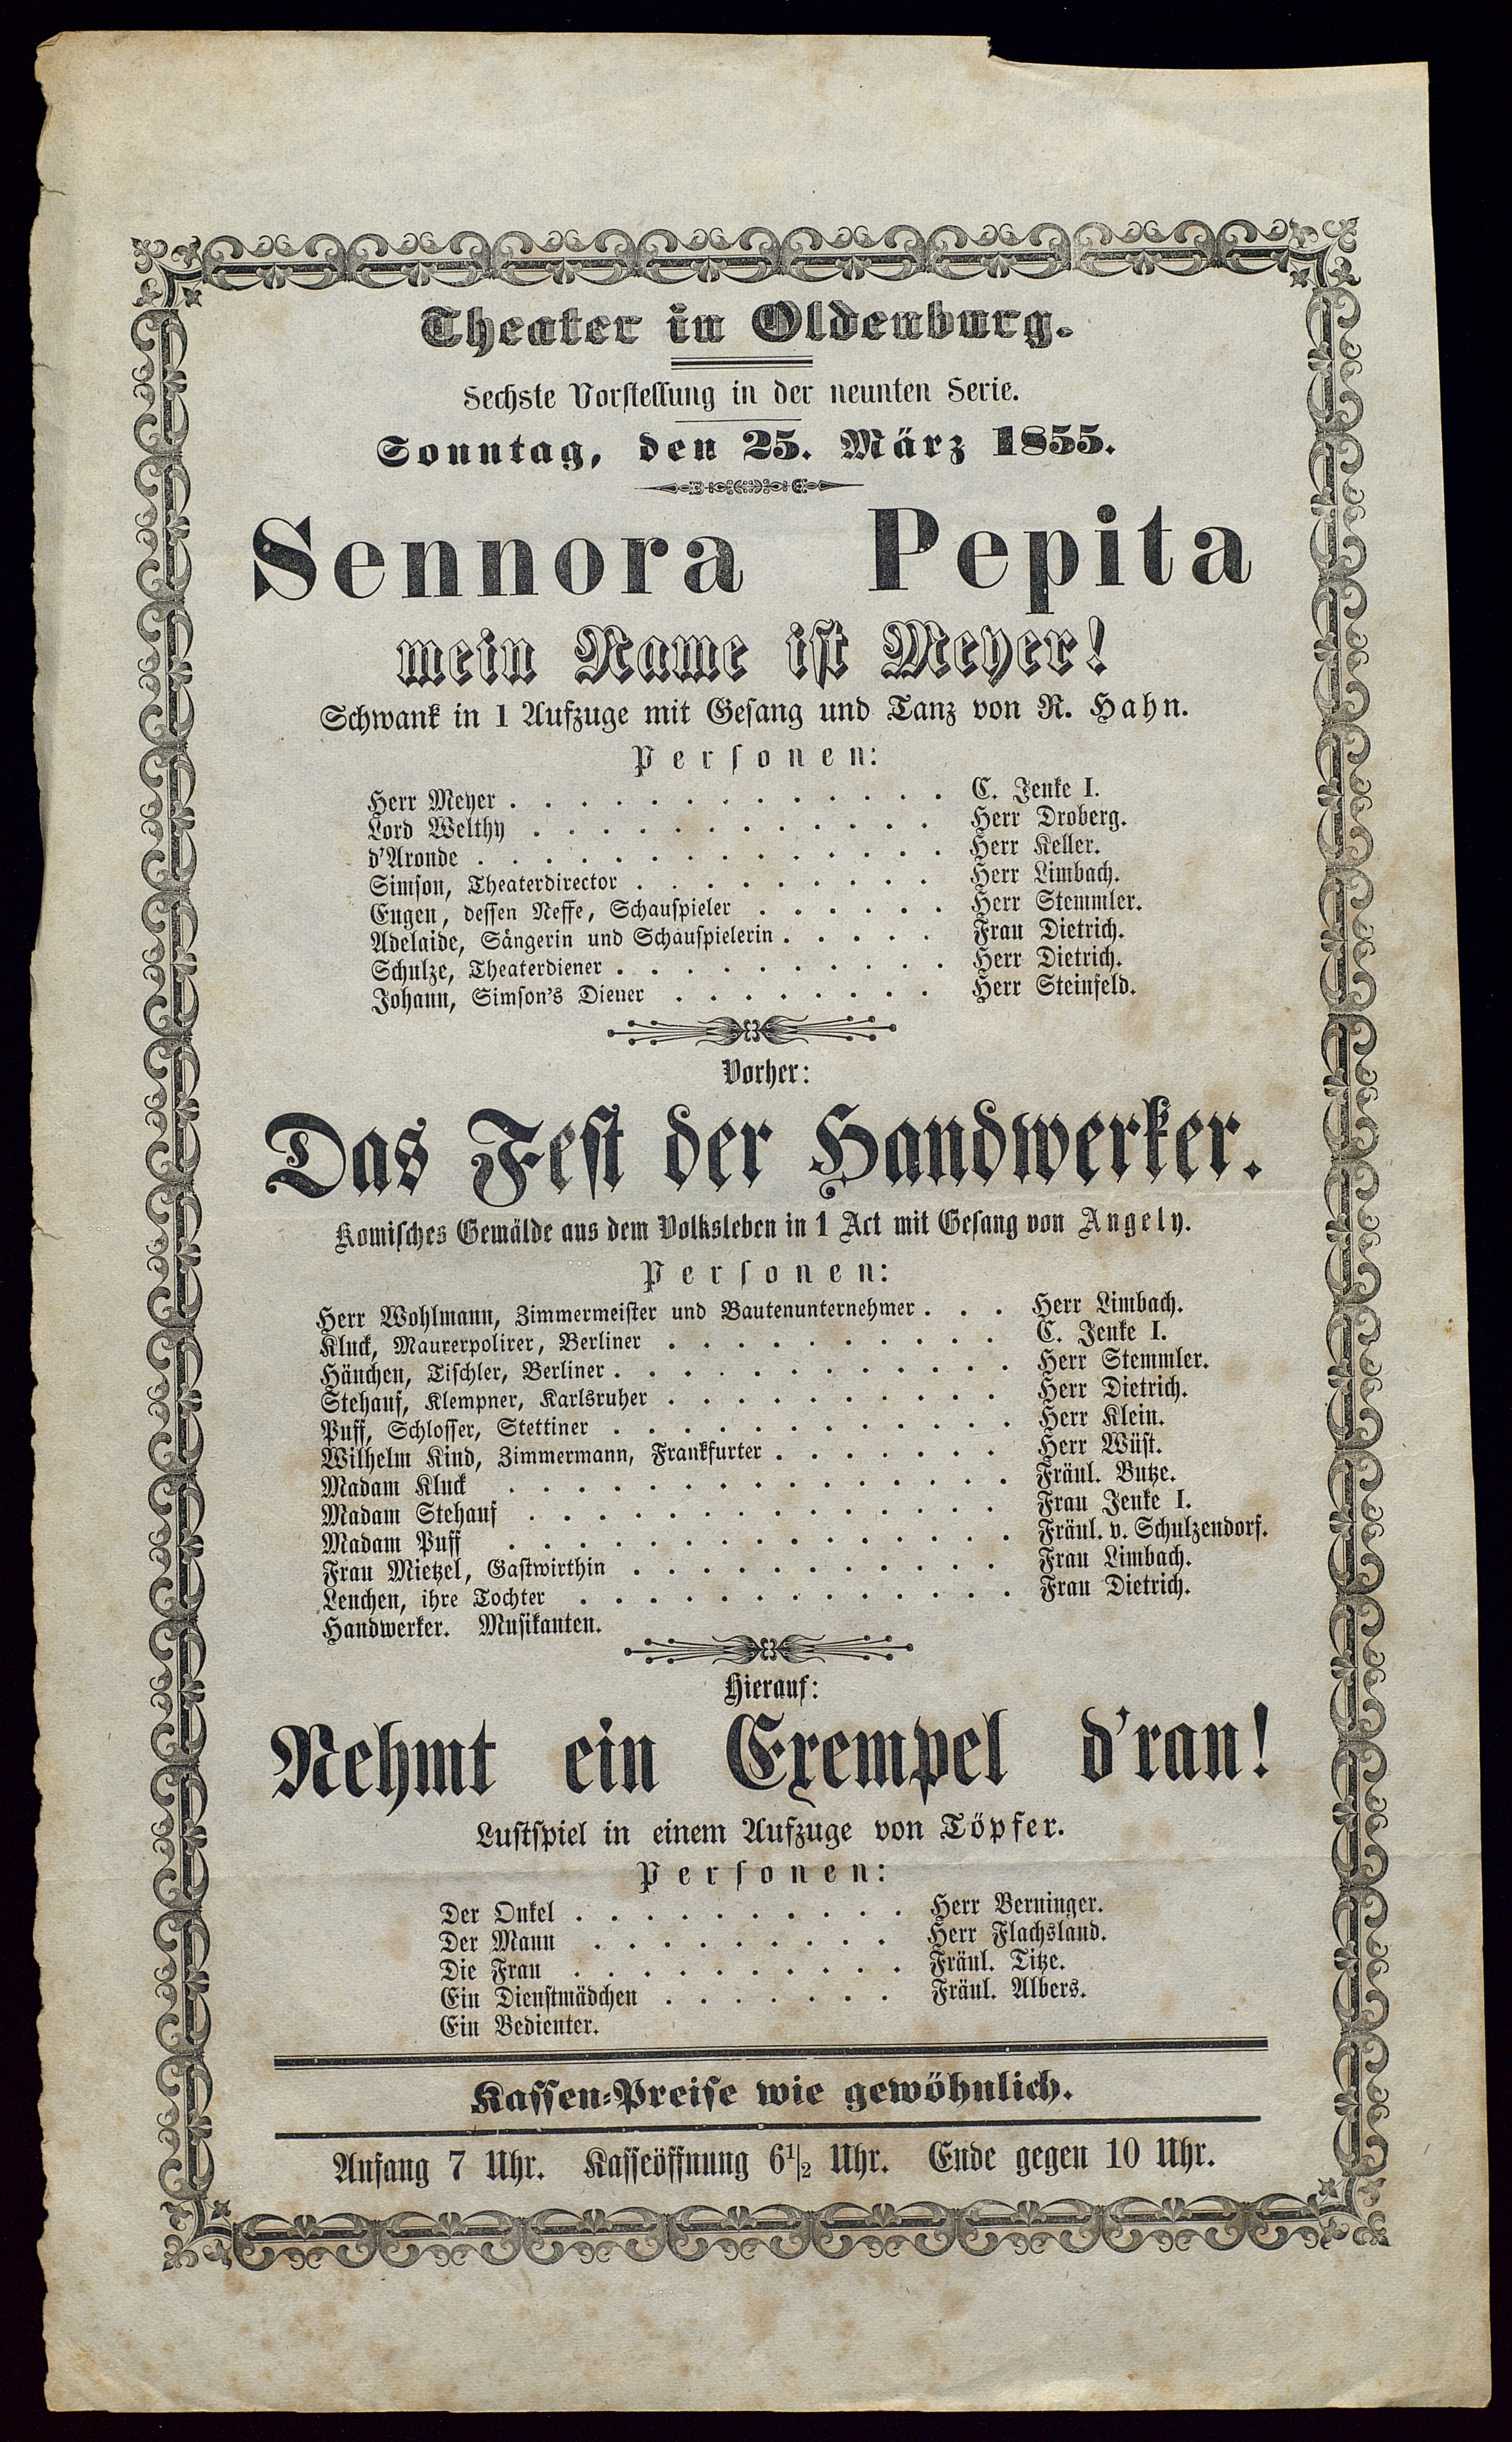 Theater in Oldenburg.
Sechste Vorstellung in der neunten Serie.
Sonntag, den 25. März 1855.
Sennora Pepita
mein Name ist Meyer!
Schwank in 1 Aufzuge mit Gesang und Tanz von R. Hahn.
Personen:
Herr Meyer . . . . . . . . . . . . . C. Jenke I.
Lord Welthy . . . . . . . . . . . . Herr Droberg.
d'Aronde . . . . . . . . . . . . . . Herr Keller.
Simson, Theaterdirector . . . . . . . . . Herr Limbach.
Eugen, dessen Neffe, Schauspieler . . . . . . Herr Stemmler.
Adelaide, Sängerin und Schauspielerin . . . . . Frau Dietrich.
Schulze, Theaterdiener . . . . . . . . . . Herr Dietrich.
Johann, Simson's Diener . . . . . . . . Herr Steinfeld.
Vorher:
Das Fest der Handwerker.
Komisches Gemälde aus dem Volksleben in 1 Act mit Gesang von Angely.
Personen:
Herr Wohlmann, Zimmermeister und Bautenunternehmer . . . Herr Limbach.
Kluck, Maurerpolirer, Berliner . . . . . . . . . . C. Jenke I.
Hänchen, Tischler, Berliner . . . . . . . . . . . . Herr Stemmler.
Stehauf, Klempner, Karlsruher . . . . . . . . . . Herr Dietrich.
Puff, Schlosser, Stettiner . . . . . . . . . . . . Herr Klein.
Wilhelm Kind, Zimmermann, Frankfurter . . . . . . . Herr Wüst.
Madam Kluck . . . . . . . . . . . . . . . Fräul. Butze.
Madam Stehauf . . . . . . . . . . . . . . Frau Jenke I.
Madam Puff . . . . . . . . . . . . . . . Fräul. v. Schulzendorf.
Frau Mietzel, Gastwirthin . . . . . . . . . . . Frau Limbach.
Lenchen, ihre Tochter . . . . . . . . . . . . . Frau Dietrich.
Handwerker. Musikanten.
Hierauf:
Nehmt ein Exempel d'ran!
Lustspiel in einem Aufzuge von Töpfer.
Personen:
Der Onkel . . . . . . . . . . Herr Berninger.
Der Mann . . . . . . . . . Herr Flachsland.
Die Frau . . . . . . . . . . Fräul. Titze.
Ein Dienstmädchen . . . . . . . Fräul. Albers.
Ein Bedienter.
Kassen-Preise wie gewöhnlich.
Anfang 7 Uhr. Kasseöffnung 6½ Uhr. Ende gegen 10 Uhr.